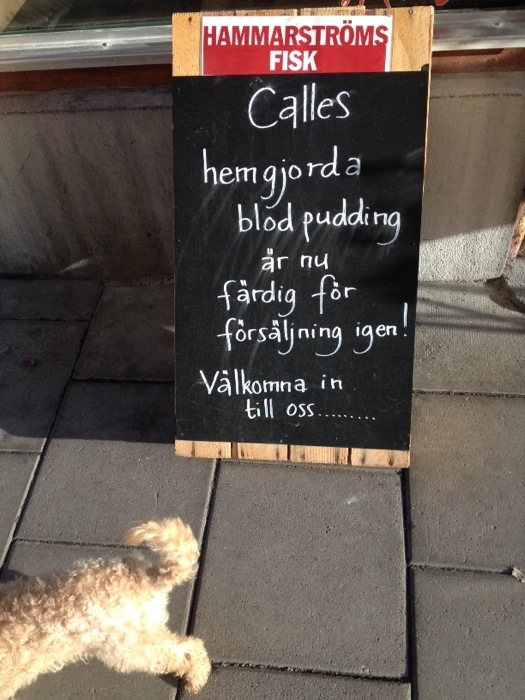 HAMMARSTRÖMS
FISK
Calles
hemgjorda
blodpudding
är nu
färdig för
försäljning igen!
Välkomna in
till oss.........